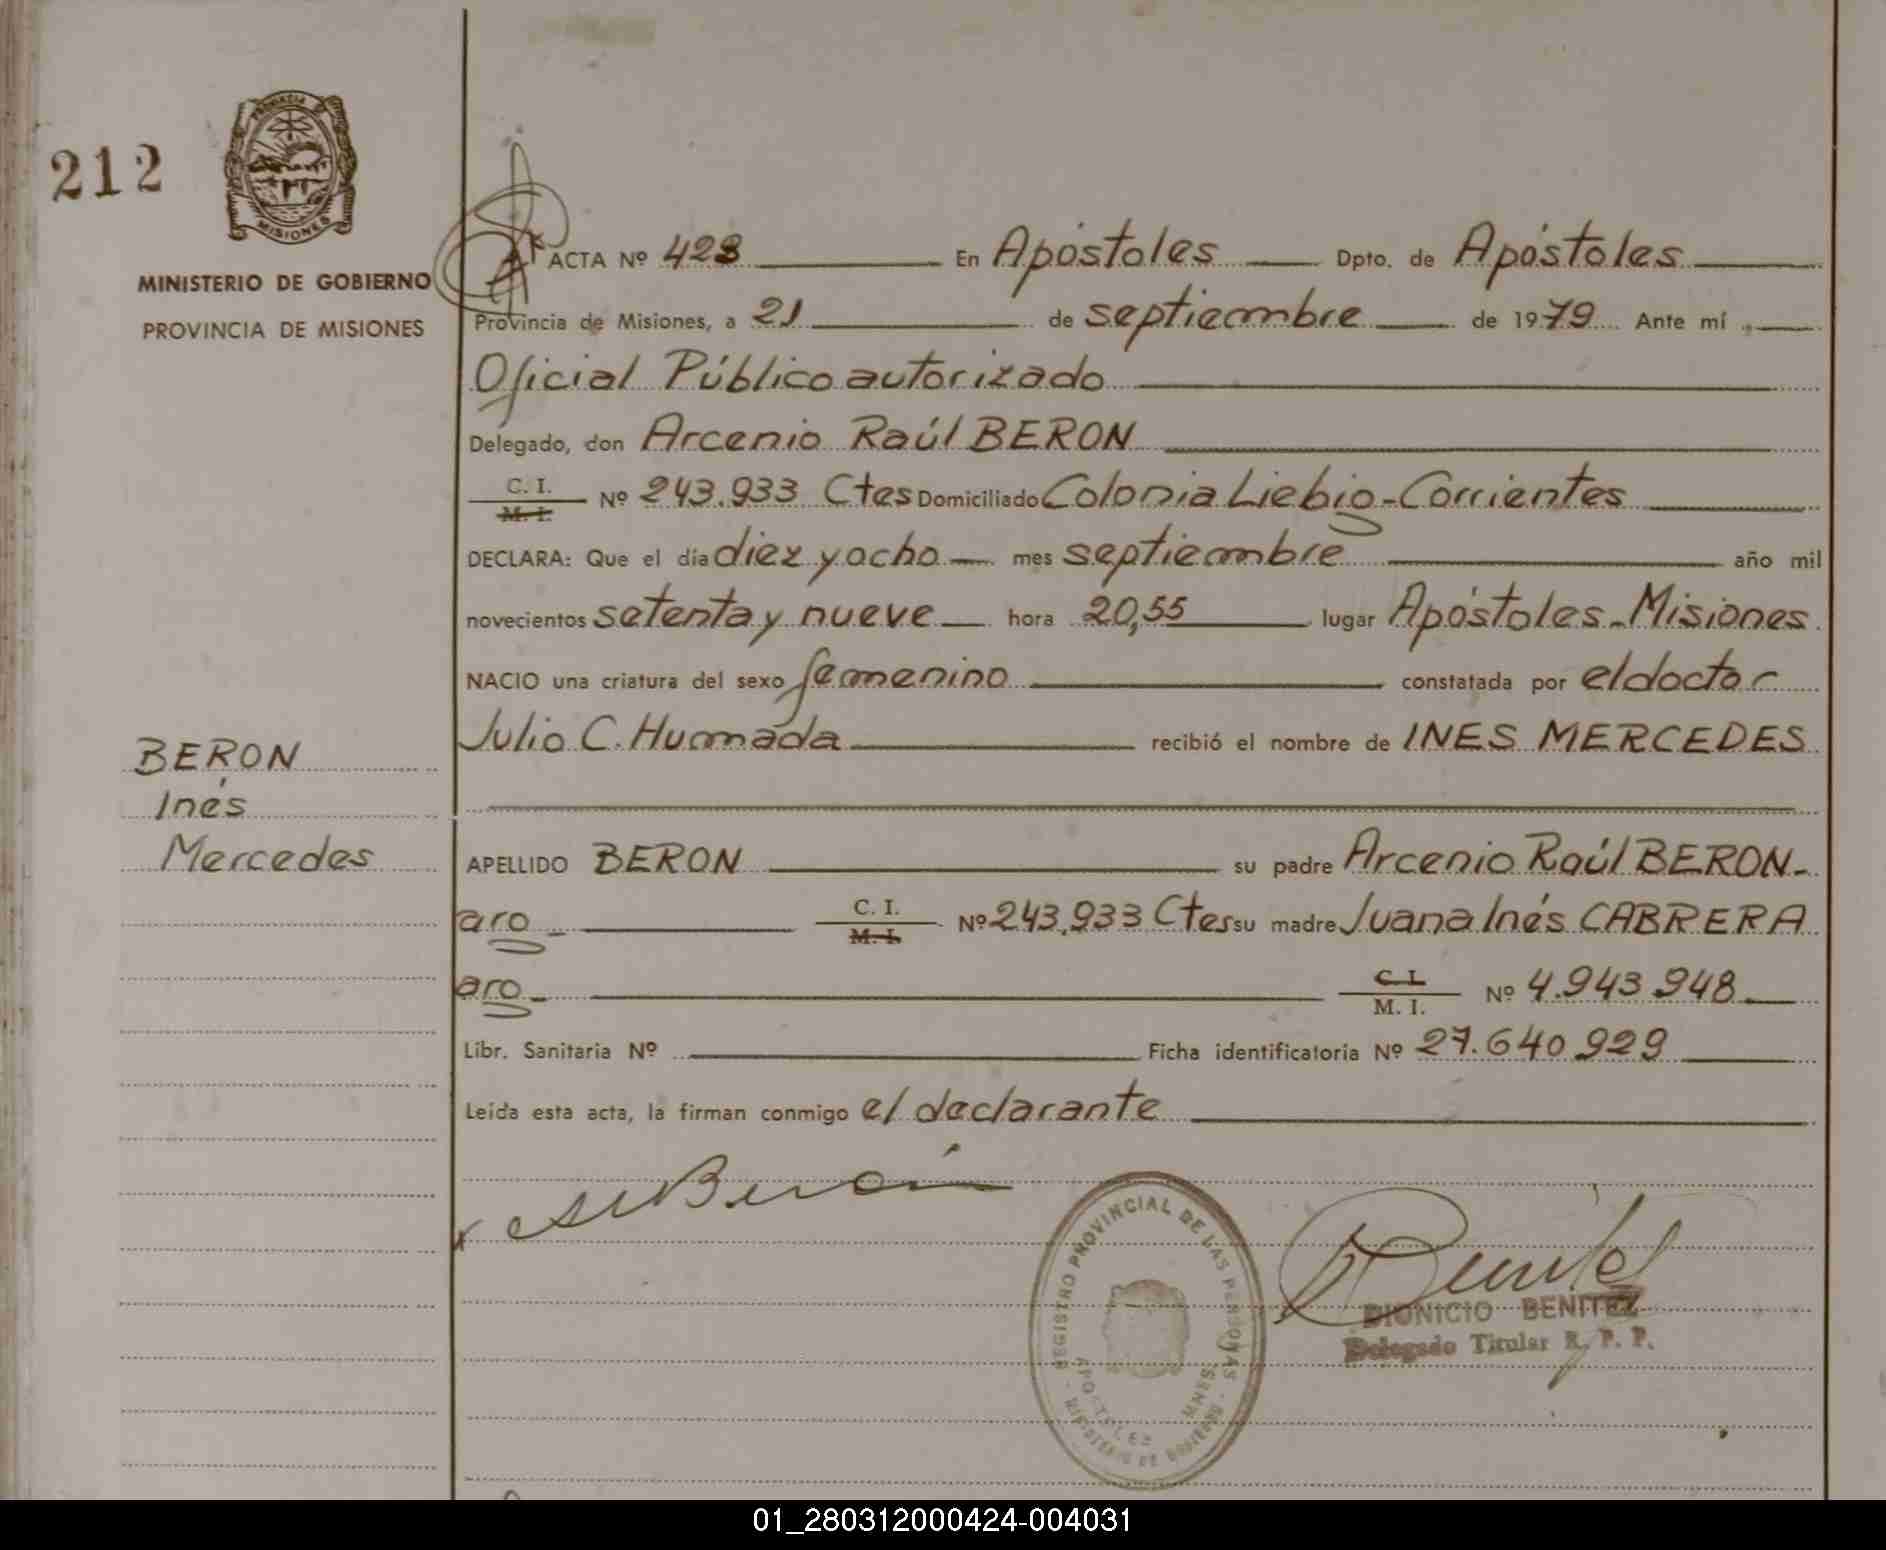 212
PROVINCIA DE
MISIONES
MINISTERIO DE GOBIERNO
PROVINCIA DE MISIONES
ACTA Nº 423 En Apóstoles Dpto. de Apóstoles
Provincia de Misiones, a 21 de septiembre de 1979 Ante mí
Oficial Público autorizado
Delegado, don Arcenio Raúl BERON
C. I.
M. I.
Nº 243.933 Ctes Domiciliado Colonia Liebig-Corrientes
DECLARA: Que el día diez y ocho mes septiembre año mil
novecientos setenta y nueve hora 20,55 lugar Apóstoles-Misiones
NACIO una criatura del sexo femenino constatada por el doctor
Julio C. Humada recibió el nombre de INES MERCEDES
BERON
Inés
Mercedes
APELLIDO BERON su padre Arcenio Raúl BERON-
aro C. I.
M. I.
Nº 243.933 Ctes su madre Juana Inés CABRERA
aro C. I.
M. I.
Nº 4.943.948
Libr. Sanitaria Nº Ficha identificatoria Nº 27.640.929
Leída esta acta, la firman conmigo el declarante
Berón
REGISTRO PROVINCIAL DE LAS PERSONAS
APOSTOLES MNES
MINISTERIO DE GOBIERNO
DIONICIO BENITEZ
Delegado Titular R. P. P.
01_280312000424-004031